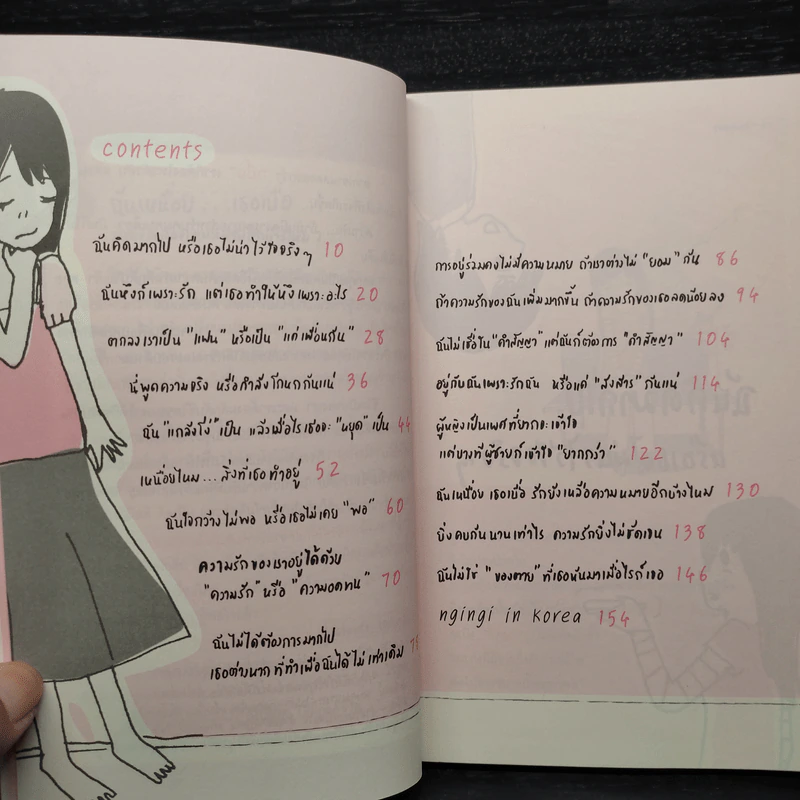 contents
ฉันคิดมากไป หรือเธอไม่น่าไว้ใจจริงๆ 10
ฉันหึงก็เพราะรัก แต่เธอทำให้หึงเพราะอะไร 20
ตกลงเราเป็น "แฟน" หรือเป็น "แค่เพื่อนกัน" 28
นี่พูดความจริง หรือกำลังโกหกกันแน่ 36
ฉัน "แกล้งโง่" เป็น แล้วเมื่อไรเธอจะ "หยุด" เป็น 44
เหนื่อยไหม... สิ่งที่เธอทำอยู่ 52
ฉันใจกว้างไม่พอ หรือเธอไม่เคย "พอ" 60
ความรักของเราอยู่ได้ด้วย
"ความรัก" หรือ "ความอดทน" 70
ฉันไม่ได้ต้องการมากไป
เธอต่างหากที่ทำเพื่อฉันได้ไม่เท่าเดิม
การอยู่ร่วมคงไม่มีความหมาย ถ้าเราต่างไม่ "ยอม" กัน 86
ถ้าความรักของฉันเพิ่มมากขึ้น ถ้าความรักของเธอลดน้อยลง 94
ฉันไม่เชื่อใน "คำสัญญา" แต่ฉันก็ต้องการ "คำสัญญา" 104
อยู่กับฉันเพราะรักฉัน หรือแค่ "สงสาร" กันแน่ 114
ผู้หญิงเป็นเพศที่ยากจะเข้าใจ
แต่บางทีผู้ชายก็เข้าใจ "ยากกว่า" 122
ฉันเหนื่อย เธอเบื่อ รักยังเหลือความหมายอีกบ้างไหม 130
ยิ่งคบกันนานเท่าไร ความรักยิ่งไม่ชัดเจน 138
ฉันไม่ใช่ "ของตาย" ที่เธอหันมาเมื่อไรก็เจอ 146
ngingi in Korea 154